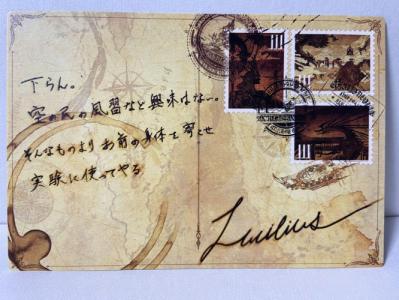 下らん。
空の民の風習など興味はない。
そんなものより お前の身体を寄こせ
実験に使ってやる
Lucilius